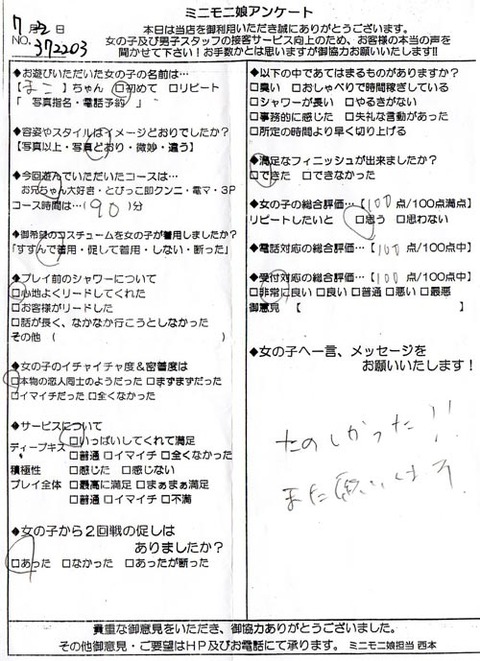 ミニモニ娘アンケート
7月22日
NO. 372203
本日は当店を御利用いただき誠にありがとうございます。
女の子及び男子スタッフの接客サービス向上のため、お客様の本当の声を
聞かせて下さい！お手数かとは思いますが御協力お願いいたします!!
◆お遊びいただいた女の子の名前は…
【まこ】ちゃん □初めて □リピート
「 写真指名・電話予約 」
◆容姿やスタイルはイメージどおりでしたか？
【写真以上・写真どおり・微妙・違う】
◆今回遊んでいただいたコースは…
お兄ちゃん大好き・とびっこ即クンニ・電マ・3P
コース時間は…(90)分
◆御希望のコスチュームを女の子が着用しましたか？
「すすんで着用・促して着用・しない・断った」
◆プレイ前のシャワーについて
□心地よくリードしてくれた
□お客様がリードした
□話が長く、なかなか行こうとしなかった
その他（ ）
◆女の子のイチャイチャ度＆密着度は
□本物の恋人同士のようだった □まずまずだった
□イマイチだった □全くなかった
◆サービスについて
ディープキス □いっぱいしてくれて満足
□普通 □イマイチ □全くなかった
積極性 □感じた □感じない
プレイ全体 □最高に満足 □まぁまぁ満足
□普通 □イマイチ □不満
◆女の子から２回戦の促しは
ありましたか？
□あった □なかった □あったが断った
◆以下の中であてはまるものがありますか？
□臭い □おしゃべりで時間稼ぎしている
□シャワーが長い □やるきがない
□事務的に感じた □失礼な言動があった
□所定の時間より早く切り上げる
◆満足なフィニッシュが出来ましたか？
□できた □できなかった
◆女の子の総合評価…【100 点/100点満点】
リピートしたいと □思う □思わない
◆電話対応の総合評価…【100 点/100点中】
◆受付対応の総合評価…【100 点/100点中】
□非常に良い □良い □普通 □悪い □最悪
御意見【 】
◆女の子へ一言、メッセージを
お願いいたします！
たのしかった!!
また願いします
貴重な御意見をいただき、御協力ありがとうございました。
その他御意見・ご要望はHP及びお電話にて承ります。 ミニモニ娘担当 西本